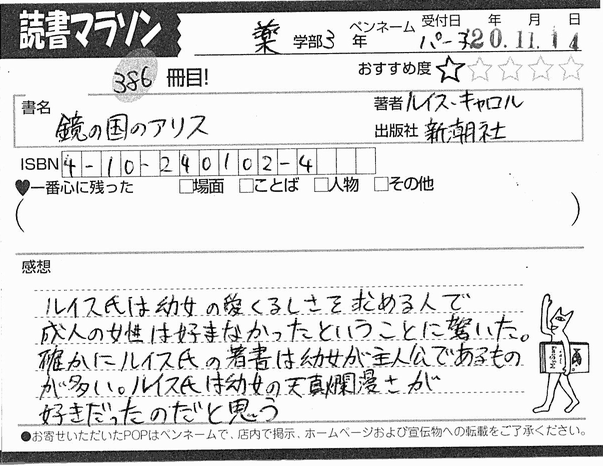 読書マラソン
薬 学部 3 年 ペンネーム パーコ 受付日 年 月 日 20.11.14
386 冊目!
おすすめ度 ☆☆☆☆☆
書名 鏡の国のアリス
著者 ルイス・キャロル
出版社 新潮社
ISBN 4-10-240102-4
♥一番心に残った □場面 □ことば □人物 □その他
( )
感想
ルイス氏は幼女の愛くるしさを求める人で
成人の女性は好まなかったということに驚いた。
確かにルイス氏の著書は幼女が主人公であるもの
が多い。ルイス氏は幼女の天真爛漫さが
好きだったのだと思う
●お寄せいただいたPOPはペンネームで、店内で掲示、ホームページおよび宣伝物への転載をご了承ください。